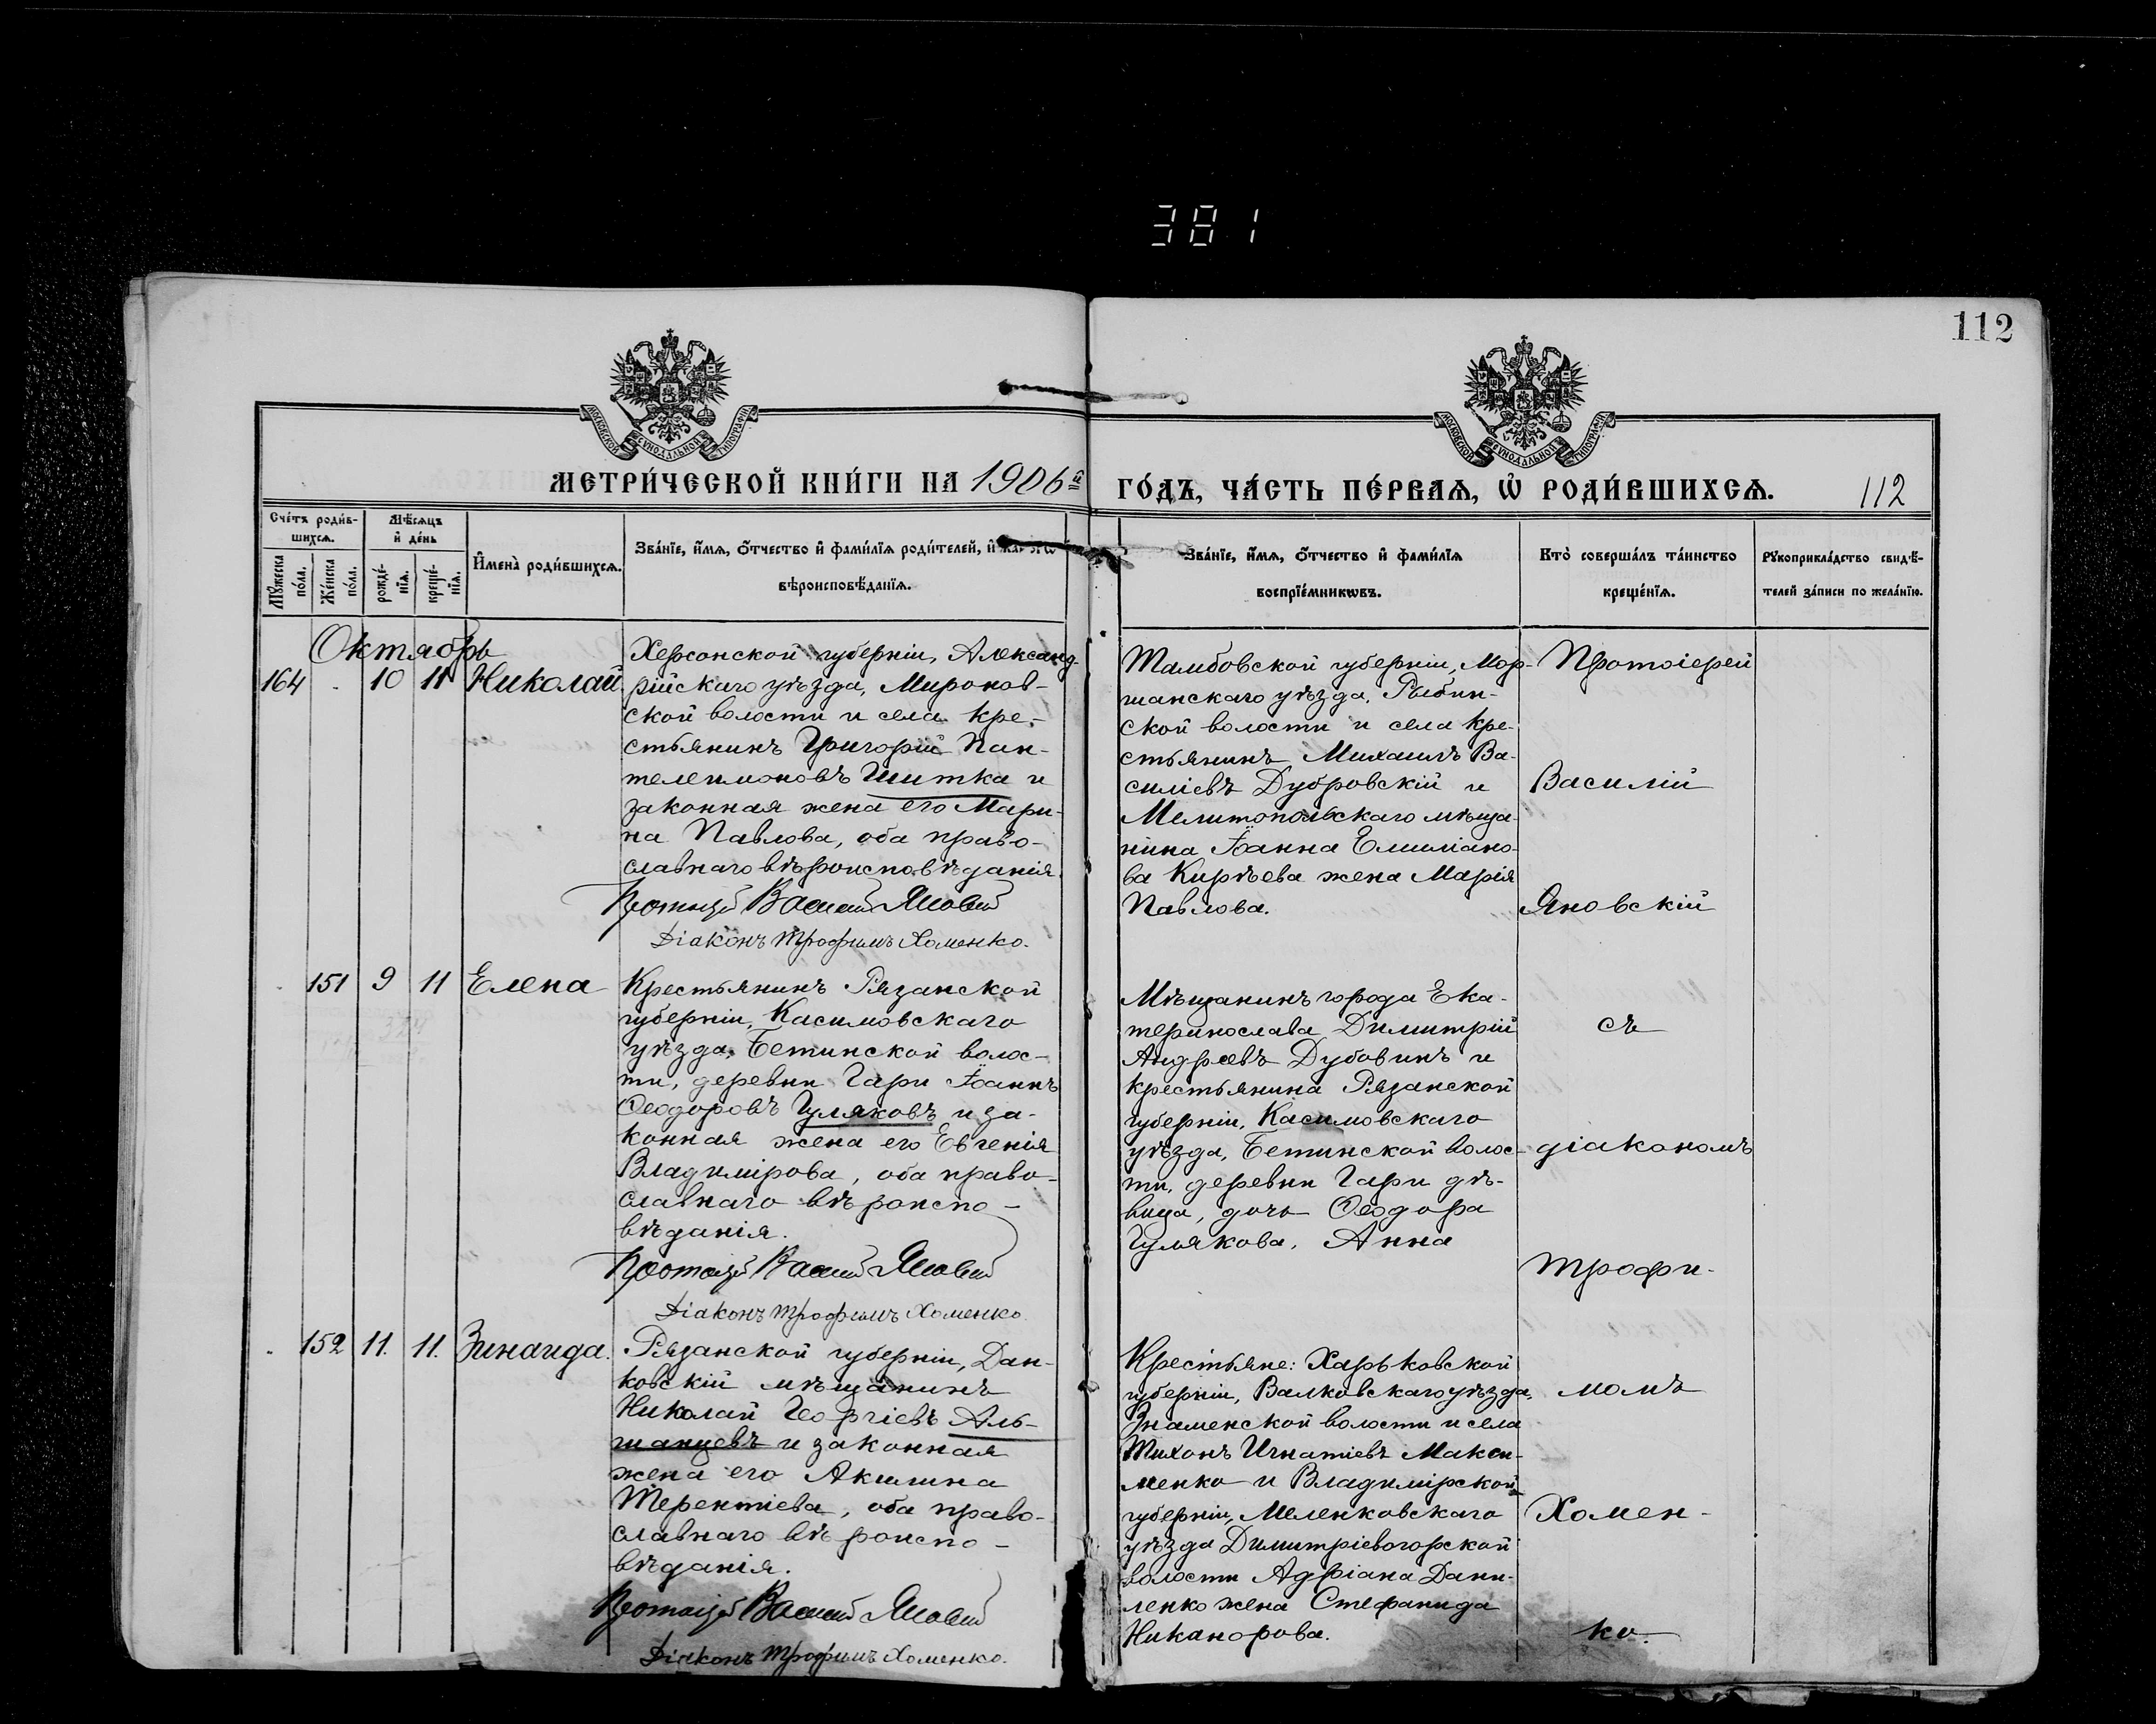 381
112
МОСКОВСКОЙ СѴНОДАЛЬНОЙ ТИПОГРАФІИ
МОСКОВСКОЙ СѴНОДАЛЬНОЙ ТИПОГРАФІИ
МЕТРИ́ЧЕСКОЙ КНИ́ГИ НА 1906й
ГО́ДЪ, ЧА́СТЬ ПЕ́РВАѦ, Ѡ҆ РОДИ́ВШИХСѦ. 112
Сче́тъ роди́в-
шихсѧ.
Мꙋ́жеска по́ла.
Же́нска по́ла.
Мѣ́сѧцъ
и҆ де́нь
рожде́-
нїѧ.
креще́-
нїѧ.
И҆мена̀ роди́вшихсѧ.
Зва́нїе, и҆́мѧ, ѻ҆́тчество и҆ фами́лїѧ роди́телей, и҆
вѣроисповѣ́данїѧ.
Зва́нїе, и҆́мѧ, ѻ҆́тчество и҆ фами́лїѧ
воспрїе́мникѡвъ.
Кто̀ соверша́лъ та́инство
креще́нїѧ.
Рꙋкоприкла́дство свидѣ́-
телей за́писи по жела́нїю.
Октябрь
164 10 11 Николай
Херсонской губерніи, Александ-
рійскаго уѣзда, Миронов-
ской волости и села кре-
стьянинъ Григорій Пан-
телеимоновъ Шитка и
законная жена его Мари-
на Павлова, оба право-
славнаго вѣроисповѣданія.
Протоіерей Василій Яновскій
Діаконъ Трофимъ Хоменко.
Тамбовской губерніи, Мор-
шанскаго уѣзда, Рыбин-
ской волости и села кре-
стьянинъ Михаилъ Ва-
силіевъ Дубровскій и
Мелитопольскаго мѣща-
нина Іоанна Емиліано-
ва Кирѣева жена Марія
Павлова.
Протоіерей
Василій
Яновскій
151 9 11 Елена
Крестьянинъ Рязанской
губерніи, Касимовскаго
уѣзда, Бетинской волос-
ти, деревни Гари Іоаннъ
Ѳеодоровъ Гуляковъ и за-
конная жена его Евгенія
Владимірова, оба право-
славнаго вѣроиспо-
вѣданія.
Протоіерей Василій Яновскій
Діаконъ Трофимъ Хоменко
Мѣщанинъ города Ека-
теринослава Димитрій
Андреевъ Дубовинъ и
крестьянина Рязанской
губерніи, Касимовскаго
уѣзда, Бетинской волос-
ти, деревни Гари дѣ-
вица, дочь Ѳеодора
Гулякова, Анна
съ
діакономъ
Трофи-
152 11. 11. Зинаида.
Рязанской губерніи, Дан-
ковскій мѣщанинъ
Николай Георгіевъ Аль-
шанцевъ и законная
жена его Акилина
Терентіева, оба право-
славнаго вѣроиспо-
вѣданія.
Протоіерей Василій Яновскій
Діаконъ Трофимъ Хоменко.
Крестьяне: Харьковской
губерніи, Валковскаго уѣзда,
Знаменской волости и села
Тихонъ Игнатіевъ Макси-
менко и Владимірской
губерніи, Меленковскаго
уѣзда Димитріевогорской
волости Адріана Дани-
ленко жена Стефанида
Никанорова.
момъ
Хомен-
ко.